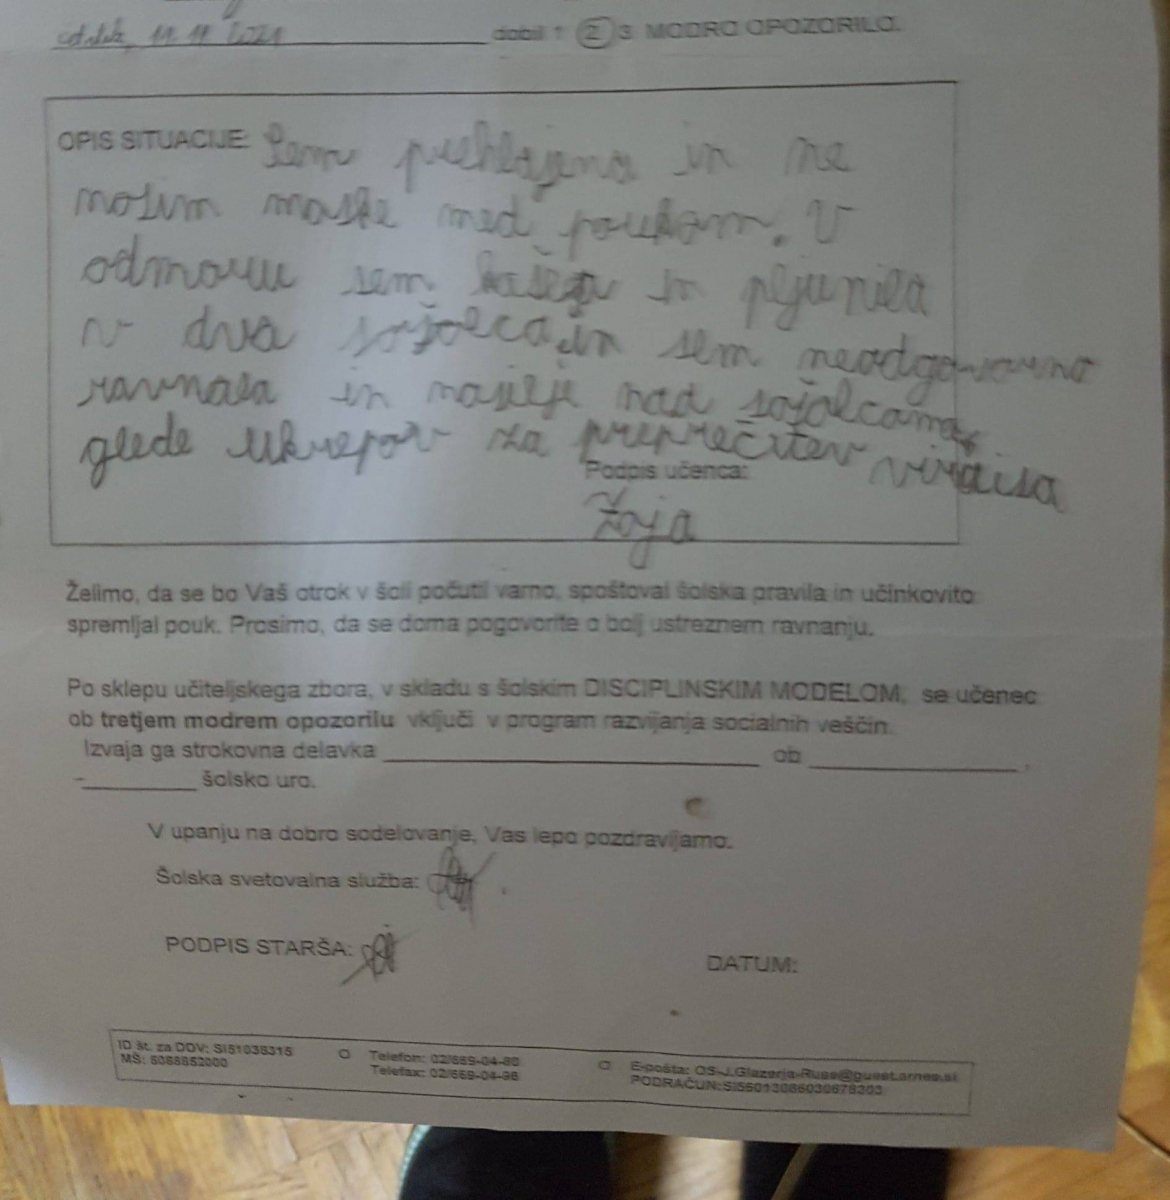 11. 11 2021 dobil 1 2 3 MODRO OPOZORILO.
OPIS SITUACIJE: Sem prehlajena in ne
nosim maske med poukom. V
odmoru sem in pljunila
v dva sošolca, in sem neodgovorno
ravnala in nad sošolcama
glede ukrepov za preprečitev virusa
Podpis učenca:
Zoja
Želimo, da se bo Vaš otrok v šoli počutil varno, spoštoval šolska pravila in učinkovito
spremljal pouk. Prosimo, da se doma pogovorite o bolj ustreznem ravnanju.
Po sklepu učiteljskega zbora, v skladu s šolskim DISCIPLINSKIM MODELOM, se učenec
ob tretjem modrem opozorilu vključi v program razvijanja socialnih veščin.
Izvaja ga strokovna delavka ob .
- šolsko uro.
V upanju na dobro sodelovanje, Vas lepo pozdravljamo.
Šolska svetovalna služba:
PODPIS STARŠA:
DATUM:
ID št. za DDV: SI51036315
MŠ: 5085852000
Telefon: 02/669-04-80
Telefax: 02/669-04-96
E-pošta: OS-J.Glazerja-Ruse@guest.arnes.si
PODRAČUN: